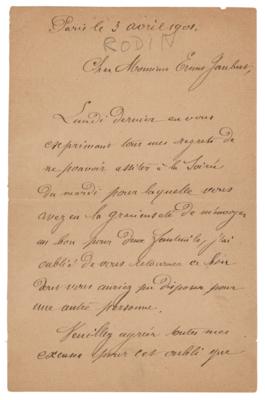 Paris le 3 avril 1901.
RODIN
Cher Monsieur Ernest Jaubert,
Lundi dernier en vous
exprimant tous mes regrets de
ne pouvoir assister à la Soirée
du mardi pour laquelle vous
avez eu la gracieuseté de m'envoyer
un bon pour deux fauteuils, j'ai
oublié de vous retourner ce bon
dont vous auriez pu disposer pour
une autre personne.
Veuillez agréer toutes mes
excuses pour cet oubli que